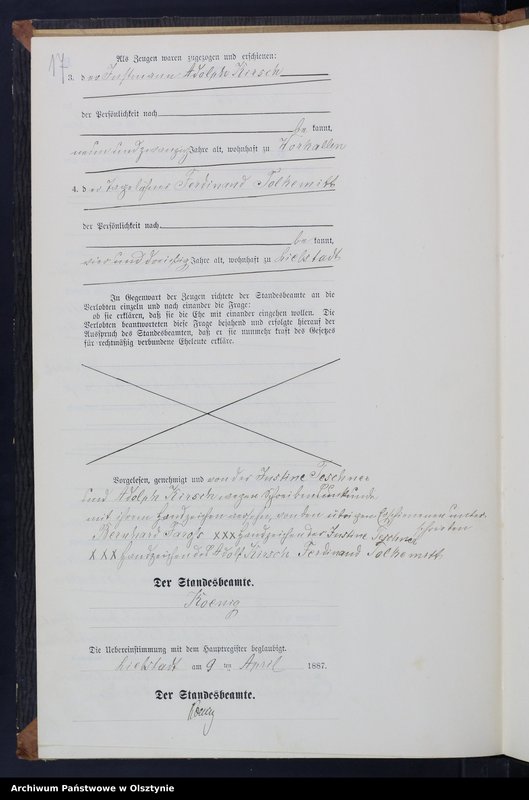 17
Als Zeugen waren zugezogen und erschienen:
3. der Instmann Adolph Kirsch
der Persönlichkeit nach
be kannt,
neun und zwanzig Jahre alt, wohnhaft zu
4. der Tagelöhner Ferdinand Tolkemitt
der Persönlichkeit nach
be kannt,
vier und dreißig Jahre alt, wohnhaft zu Liebstadt
In Gegenwart der Zeugen richtete der Standesbeamte an die
Verlobten einzeln und nach einander die Frage:
ob sie erklären, daß sie die Ehe mit einander eingehen wollen. Die
Verlobten beantworteten diese Frage bejahend und erfolgte hierauf der
Ausspruch des Standesbeamten, daß er sie nunmehr kraft des Gesetzes
für rechtmäßig verbundene Eheleute erkläre.
Vorgelesen, genehmigt und von der Justine Teschner
und Adolph Kirsch wegen Schreibensunkunde
mit ihrem Handzeichen versehen, von den übrigen Erschienenen unter-
schrieben
Bernhard XXX Handzeichen der Justine Teschner
XXX Handzeichen des Adolf Kirsch Ferdinand Tolkemitt
Der Standesbeamte.
Koenig
Die Uebereinstimmung mit dem Hauptregister beglaubigt.
Liebstadt am 9 ten April 1887.
Der Standesbeamte.
Koenig
Archiwum Państwowe w Olsztynie